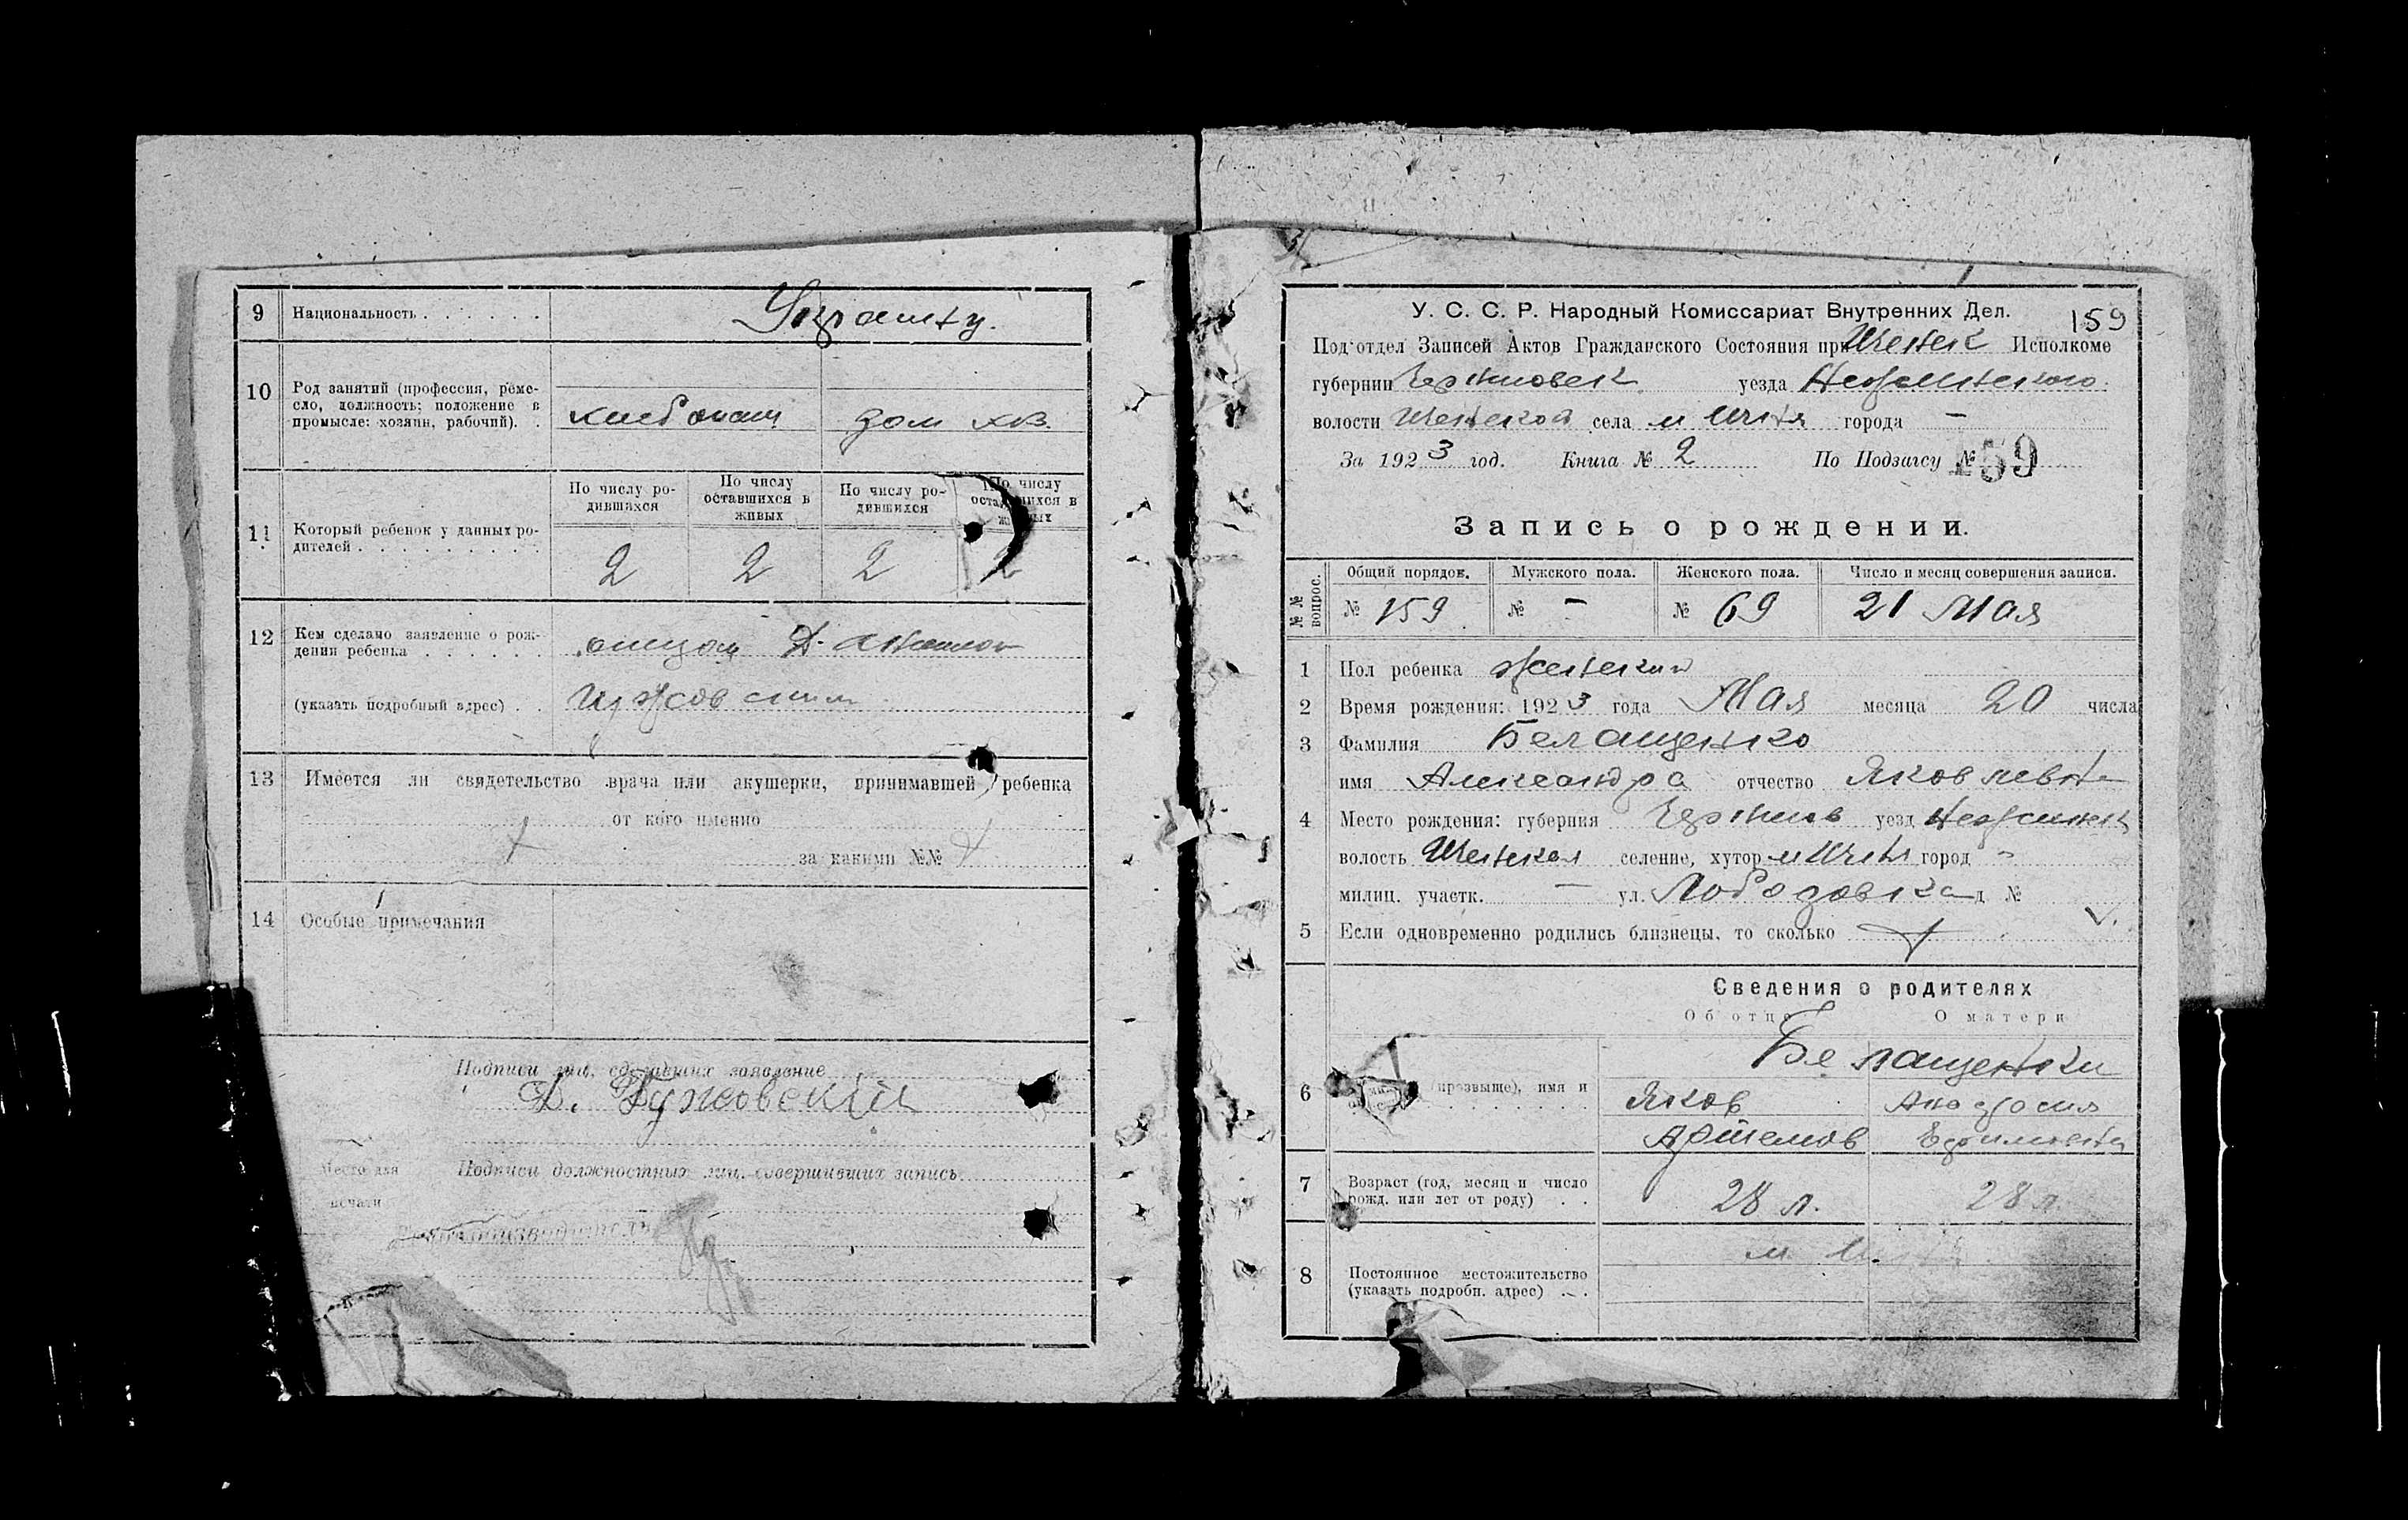 9 Национальность . . . . . . Украинц.
10 Род занятий (профессия, реме-
сло, должность; положение в
промысле: хозяин, рабочий). .
хлебопаш дом хоз.
11 Который ребенок у данных ро-
дителей . . . . . . . . . .
По числу ро-
дившихся
По числу
оставшихся в
живых
По числу ро-
дившихся
По числу
оставшихся в
живых
2 2 2 2
12 Кем сделано заявление о рож-
дении ребенка . . . . . .
(указать подробный адрес) . .
13 Имеется ли свидетельство врача или акушерки, принимавшей ребенка
от кого именно
за какими №№
14 Особые примечания
Подписи лиц, сделавших заявление
Место для Подписи должностных лиц, совершивших запись
печати
Делопроизводитель
159
У. С. С. Р. Народный Комиссариат Внутренних Дел.
Под'отдел Записей Актов Гражданского Состояния при Ичнск Исполкоме
губернии Черниговск уезда Нежинского
волости Ичнской села м Ичня города —
За 1923 год. Книга № 2 По Подзагсу № 159
Запись о рождении.
№№ вопрос. Общий порядок. Мужского пола. Женского пола. Число и месяц совершения записи.
№ 159 № — № 69 21 Мая
1 Пол ребенка женский
2 Время рождения: 1923 года Мая месяца 20 числа
3 Фамилия Белащенко
имя Александра отчество Яковлевна
4 Место рождения: губерния Чернигов уезд Нежинск
волость Ичнская селение, хутор м Ичня город "
милиц. участк. — ул. Лободовка д. №
5 Если одновременно родились близнецы, то сколько
Сведения о родителях
Об отце О матери
Белащенки
6 (прозвище), имя и
Яков
Артемов Ефимовна
7 Возраст (год, месяц и число
рожд. или лет от роду) . .
28 л. 28 л.
8 Постоянное местожительство
(указать подробн. адрес) . .
м. Ичня